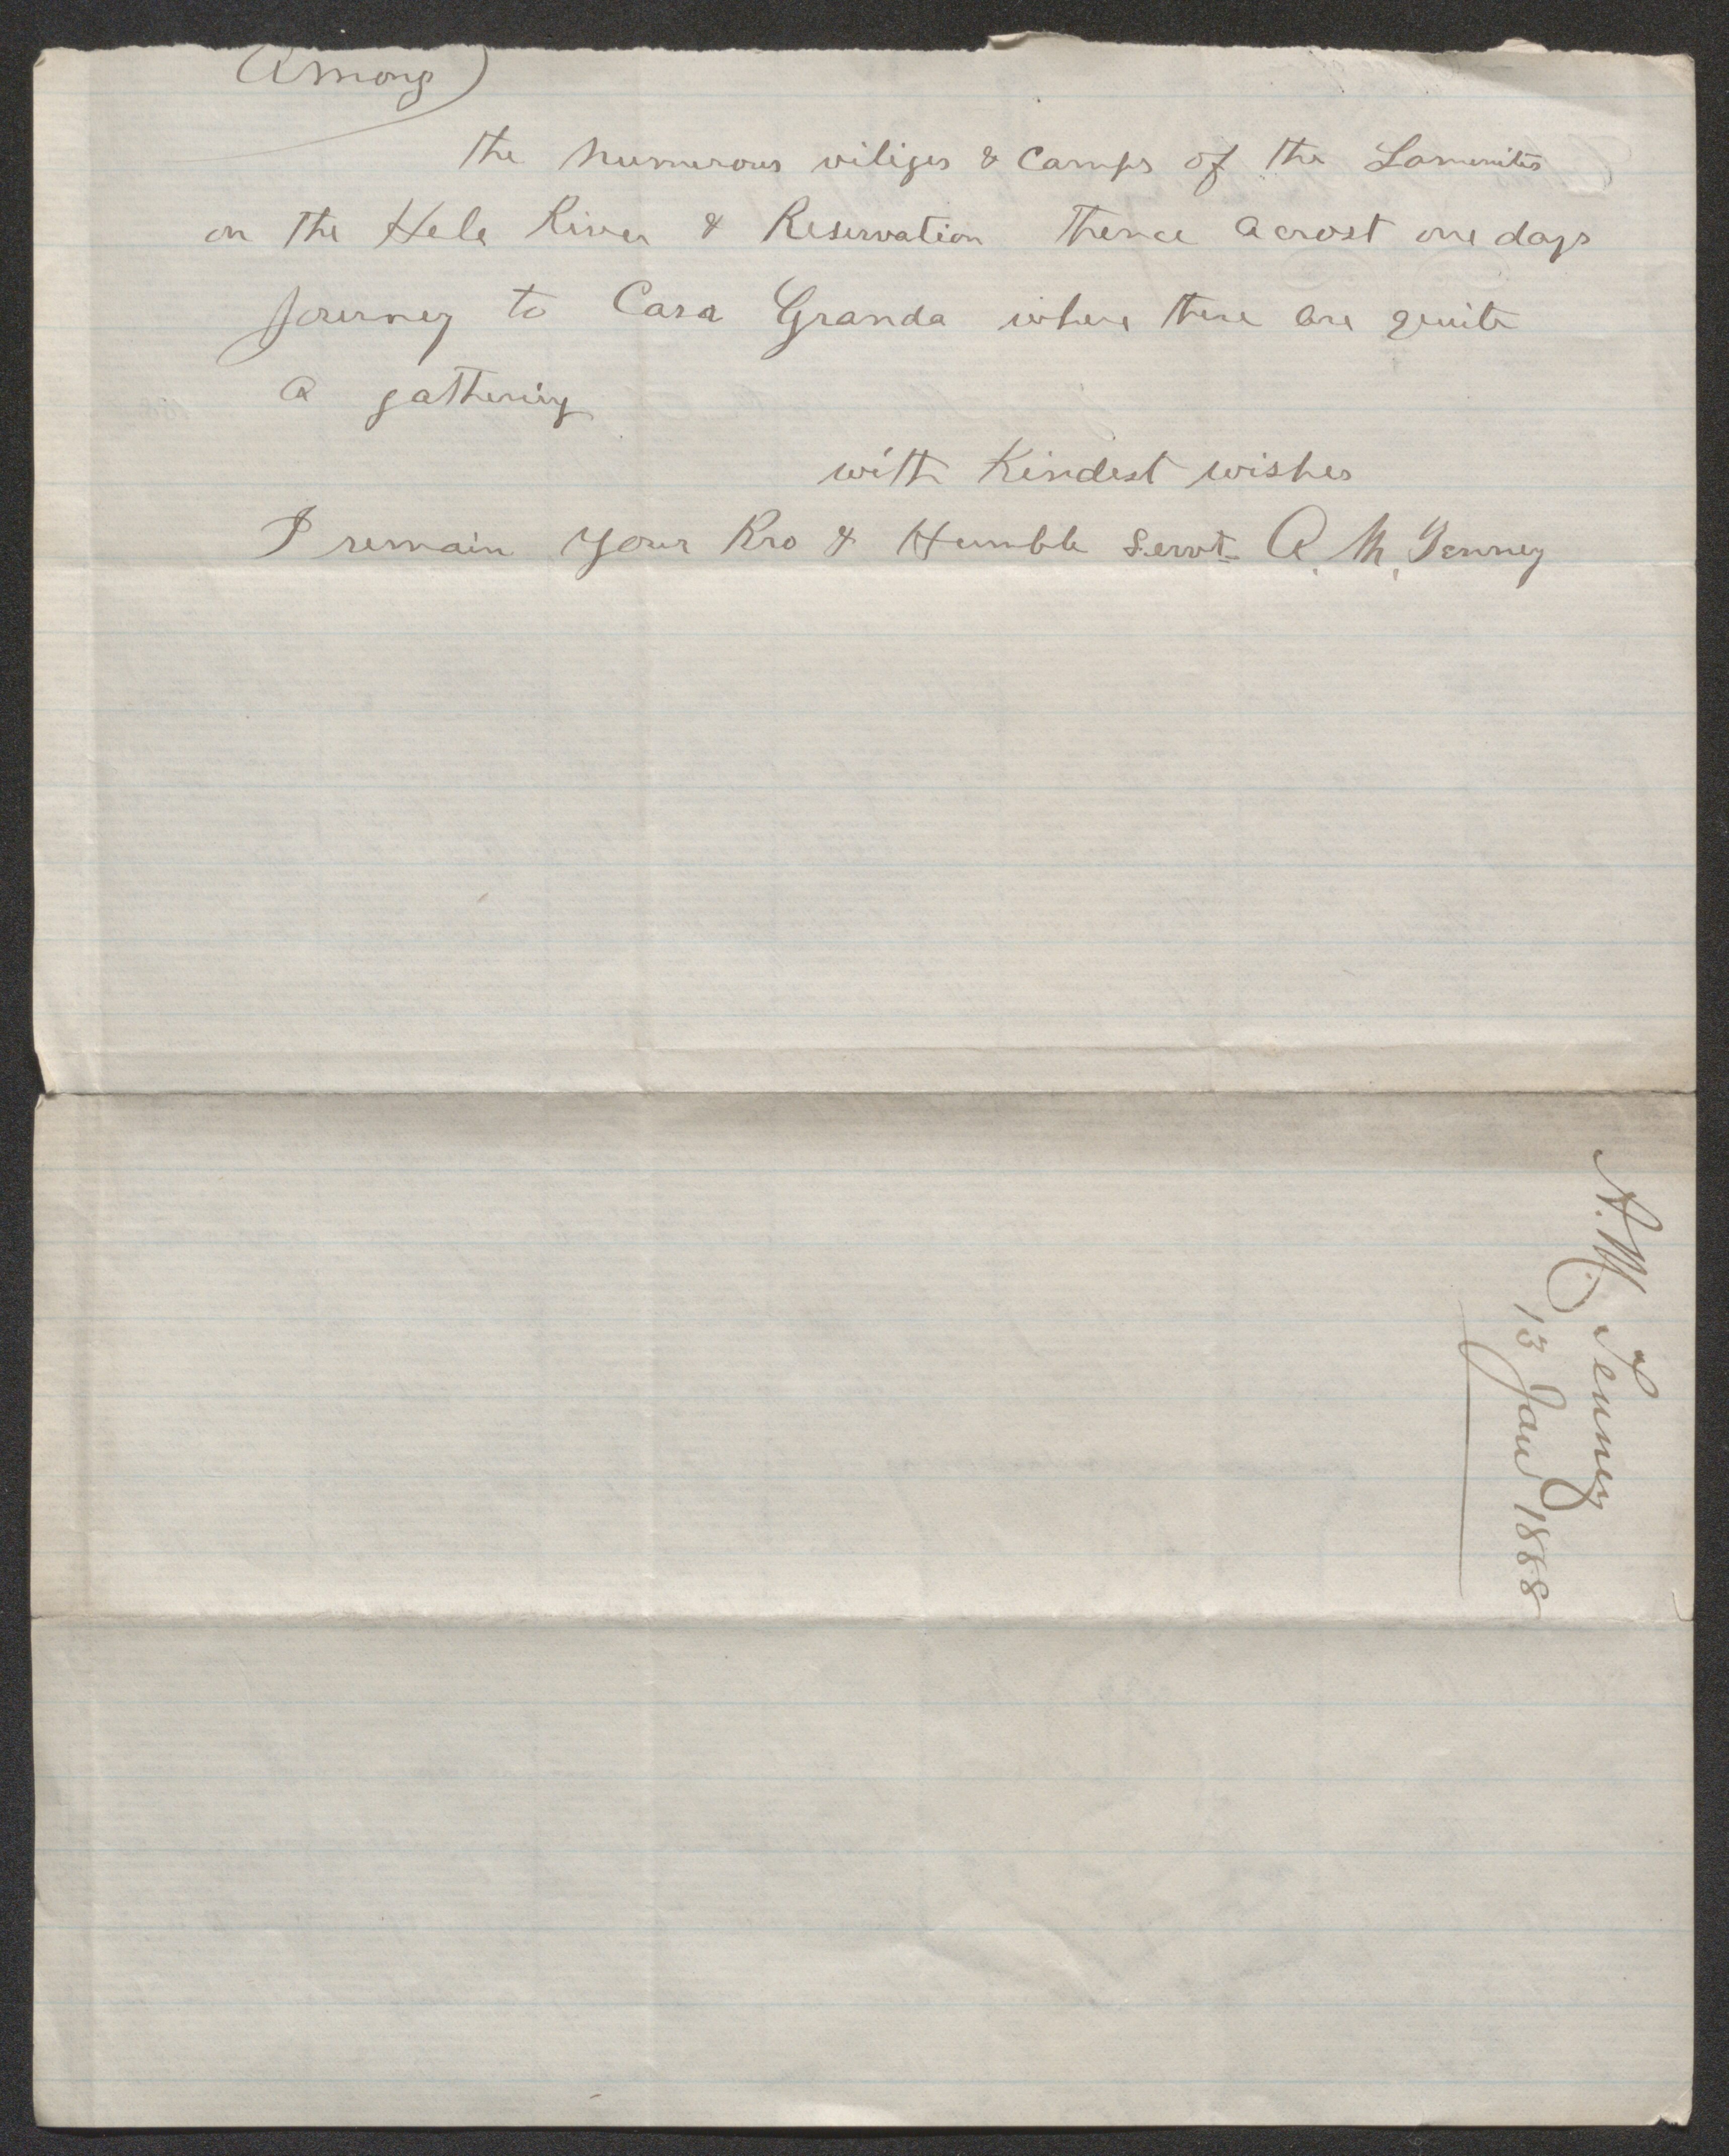 Among)
the numerous viliges & Camps of the Lamenites
on the Hela River & Reservation Thence acrost one days
journey to Casa Granda where there are quite
a gathering
with Kindest wishes
I remain your Bro & Humble Servt A. M. Tenney
A. M. Tenney
13 Jan 1888